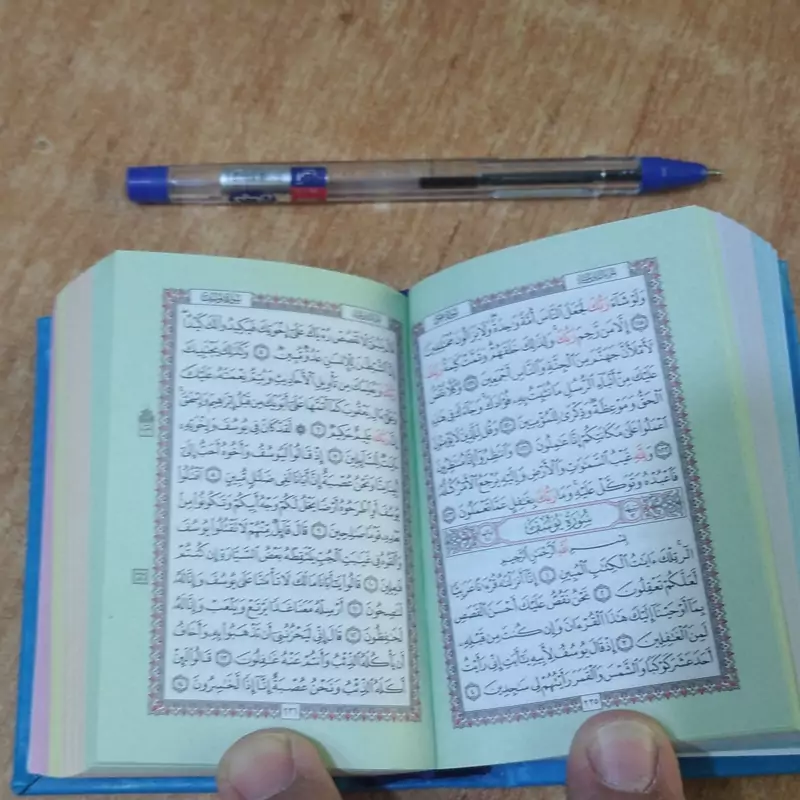 وَلَوْ شَآءَ رَبُّكَ لَجَعَلَ النَّاسَ أُمَّةً وَٰحِدَةً وَلَا يَزَالُونَ مُخْتَلِفِينَ
۝١١٨ إِلَّا مَن رَّحِمَ رَبُّكَ وَلِذَٰلِكَ خَلَقَهُمْ وَتَمَّتْ كَلِمَةُ رَبِّكَ
لَأَمْلَأَنَّ جَهَنَّمَ مِنَ الْجِنَّةِ وَالنَّاسِ أَجْمَعِينَ ۝١١٩ وَكُلًّا نَّقُصُّ
عَلَيْكَ مِنْ أَنۢبَآءِ الرُّسُلِ مَا نُثَبِّتُ بِهِۦ فُؤَادَكَ وَجَآءَكَ فِي هَٰذِهِ
الْحَقُّ وَمَوْعِظَةٌ وَذِكْرَىٰ لِلْمُؤْمِنِينَ ۝١٢٠ وَقُل لِّلَّذِينَ لَا يُؤْمِنُونَ
اعْمَلُوا عَلَىٰ مَكَانَتِكُمْ إِنَّا عَٰمِلُونَ ۝١٢١ وَانتَظِرُوٓا إِنَّا مُنتَظِرُونَ
۝١٢٢ وَلِلَّهِ غَيْبُ السَّمَٰوَٰتِ وَالْأَرْضِ وَإِلَيْهِ يُرْجَعُ الْأَمْرُ كُلُّهُۥ
فَاعْبُدْهُ وَتَوَكَّلْ عَلَيْهِ وَمَا رَبُّكَ بِغَٰفِلٍ عَمَّا تَعْمَلُونَ ۝١٢٣
سُورَةُ يُوسُفَ
بِسْمِ اللَّهِ الرَّحْمَٰنِ الرَّحِيمِ
الٓر تِلْكَ ءَايَٰتُ الْكِتَٰبِ الْمُبِينِ ۝١ إِنَّآ أَنزَلْنَٰهُ قُرْءَٰنًا عَرَبِيًّا
لَّعَلَّكُمْ تَعْقِلُونَ ۝٢ نَحْنُ نَقُصُّ عَلَيْكَ أَحْسَنَ الْقَصَصِ
بِمَآ أَوْحَيْنَآ إِلَيْكَ هَٰذَا الْقُرْءَانَ وَإِن كُنتَ مِن قَبْلِهِۦ
لَمِنَ الْغَٰفِلِينَ ۝٣ إِذْ قَالَ يُوسُفُ لِأَبِيهِ يَٰٓأَبَتِ إِنِّي رَأَيْتُ
أَحَدَ عَشَرَ كَوْكَبًا وَالشَّمْسَ وَالْقَمَرَ رَأَيْتُهُمْ لِي سَٰجِدِينَ ۝٤
٢٣٥
سُورَةُ يُوسُفَ
قَالَ يَٰبُنَيَّ لَا تَقْصُصْ رُءْيَاكَ عَلَىٰٓ إِخْوَتِكَ فَيَكِيدُوا لَكَ كَيْدًا
إِنَّ الشَّيْطَٰنَ لِلْإِنسَٰنِ عَدُوٌّ مُّبِينٌ ۝٥ وَكَذَٰلِكَ يَجْتَبِيكَ
رَبُّكَ وَيُعَلِّمُكَ مِن تَأْوِيلِ الْأَحَادِيثِ وَيُتِمُّ نِعْمَتَهُۥ عَلَيْكَ
وَعَلَىٰٓ ءَالِ يَعْقُوبَ كَمَآ أَتَمَّهَا عَلَىٰٓ أَبَوَيْكَ مِن قَبْلُ إِبْرَٰهِيمَ وَإِسْحَٰقَ
إِنَّ رَبَّكَ عَلِيمٌ حَكِيمٌ ۝٦ ۞ لَّقَدْ كَانَ فِي يُوسُفَ وَإِخْوَتِهِۦٓ
ءَايَٰتٌ لِّلسَّآئِلِينَ ۝٧ إِذْ قَالُوا لَيُوسُفُ وَأَخُوهُ أَحَبُّ إِلَىٰٓ
أَبِينَا مِنَّا وَنَحْنُ عُصْبَةٌ إِنَّ أَبَانَا لَفِي ضَلَٰلٍ مُّبِينٍ ۝٨ اقْتُلُوا
يُوسُفَ أَوِ اطْرَحُوهُ أَرْضًا يَخْلُ لَكُمْ وَجْهُ أَبِيكُمْ وَتَكُونُوا مِنۢ
بَعْدِهِۦ قَوْمًا صَٰلِحِينَ ۝٩ قَالَ قَآئِلٌ مِّنْهُمْ لَا تَقْتُلُوا يُوسُفَ
وَأَلْقُوهُ فِي غَيَٰبَتِ الْجُبِّ يَلْتَقِطْهُ بَعْضُ السَّيَّارَةِ إِن كُنتُمْ
فَٰعِلِينَ ۝١٠ قَالُوا يَٰٓأَبَانَا مَا لَكَ لَا تَأْمَ۫نَّا عَلَىٰ يُوسُفَ وَإِنَّا لَهُۥ
لَنَٰصِحُونَ ۝١١ أَرْسِلْهُ مَعَنَا غَدًا يَرْتَعْ وَيَلْعَبْ وَإِنَّا لَهُۥ
لَحَٰفِظُونَ ۝١٢ قَالَ إِنِّي لَيَحْزُنُنِيٓ أَن تَذْهَبُوا بِهِۦ وَأَخَافُ
أَن يَأْكُلَهُ الذِّئْبُ وَأَنتُمْ عَنْهُ غَٰفِلُونَ ۝١٣ قَالُوا لَئِنْ
أَكَلَهُ الذِّئْبُ وَنَحْنُ عُصْبَةٌ إِنَّآ إِذًا لَّخَٰسِرُونَ ۝١٤
٢٣٦